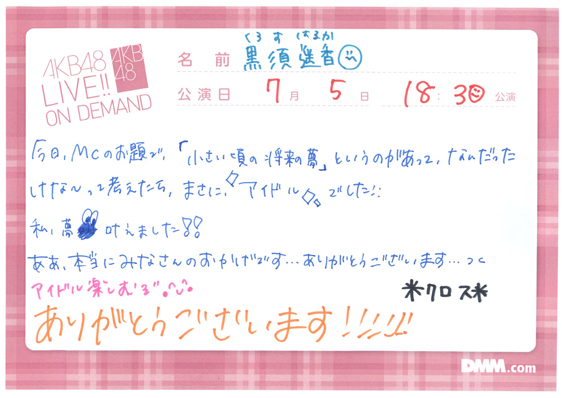 AKB48
LIVE!!
ON DEMAND
AKB
48
くろす はるか
名前 黒須遥香
公演日 7月 5日 18:30 公演
今日、MCのお題で、「小さい頃の将来の夢」というのがあって、なんだった
けな〜って考えたら、まさに、◇アイドル◇。でした!!
私、夢 叶えました!!
ああ、本当にみなさんのおかげです…ありがとうございます…
アイドル楽しむぞ
*クロス*
ありがとうございます!!!!!
DMM.com